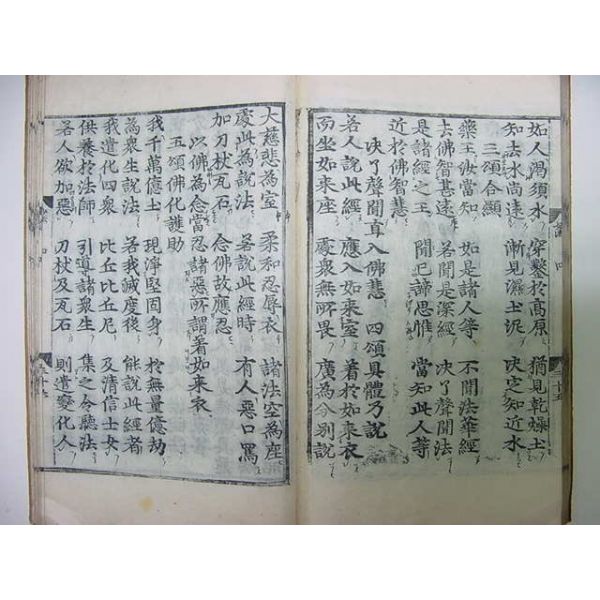 如人渴須水 穿鑿於高原 猶見乾燥土
知去水尚遠 漸見濕土泥 決定知近水
三頌合顯
藥王汝當知 如是諸人等 不聞法華經
去佛智甚遠 若聞是深經 決了聲聞法
是諸經之王 聞已諦思惟 當知此人等
近於佛智慧
決了聲聞直入佛慧 四頌具體乃說
若人說此經 應入如來室 著於如來衣
而坐如來座 處衆無所畏 廣為分別說
大慈悲為室 柔和忍辱衣 諸法空為座
處此為說法 若說此經時 有人惡口罵
加刀杖瓦石 念佛故應忍
以佛為念當忍諸惡所謂著如來衣
五頌佛化護助
我千萬億土 現淨堅固身 於無量億劫
為衆生說法 若我滅度後 能說此經者
我遣化四衆 比丘比丘尼 及清信士女
供養於法師 引導諸衆生 集之令聽法
若人欲加惡 刀杖及瓦石 則遣變化人